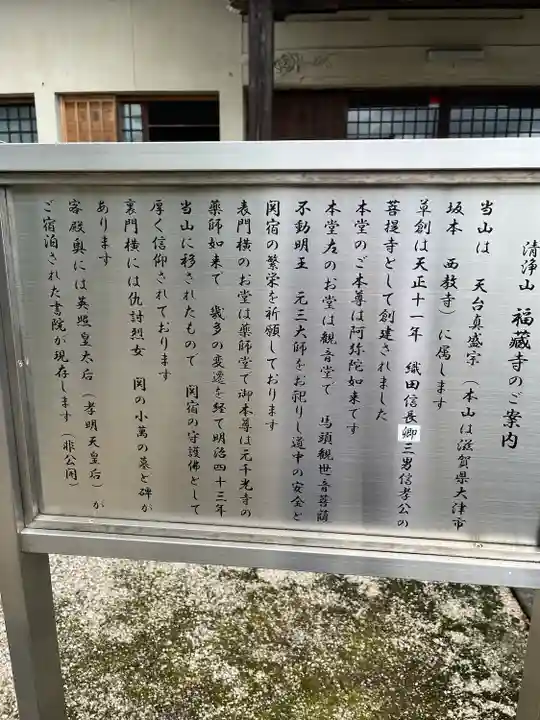 清浄山　福蔵寺のご案内
当山は　天台真盛宗（本山は滋賀県大津市
坂本　西教寺）に属します
草創は天正十一年　織田信長卿三男信孝公の
菩提寺として創建されました
本堂のご本尊は阿弥陀如来です
本堂左のお堂は観音堂で　馬頭観世音菩薩
不動明王　元三大師をお祀りし道中の安全と
関宿の繁栄を祈願しております
表門横のお堂は薬師堂で御本尊は元千光寺の
薬師如来で　幾多の変遷を経て明治四十三年
当山に移されたもので　関宿の守護佛として
厚く信仰されております
裏門横には仇討烈女　関の小萬の墓と碑が
あります
客殿奥には英照皇太后（孝明天皇后）が
ご宿泊された書院が現存します（非公開）